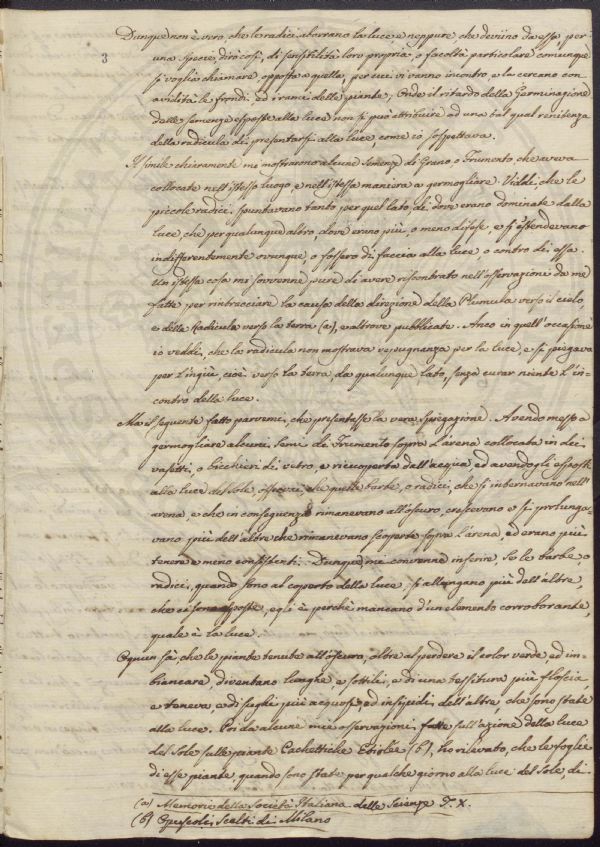 Dunque non è vero che le radici aborrano la luce e neppure che deviino da essa per
3
una specie, dirò così, di sensibilità loro propria, o facoltà particolare comunque
si voglia chiamare opposta a quella, per cui vi vanno incontro, e la cercano con
avidità le frondi, ed i rami delle piante; Onde il ritardo della Germinazione
dalle semenze esposte alla luce non si può attribuire ad una tal qual renitenza
della radicula di presentarsi alla luce, come io sospettava.
Il simile chiaramente mi mostrarono alcune Semenze di Grano, o Frumento, che aveva
collocate nell'istesso luogo, e nell'istessa maniera a germogliare. Viddi, che le
piccole radici spuntavano tanto per quel lato, di dove erano dominate dalla
luce, che per qualunque altro, dove erano più, o meno difese, e si estendevano
indifferentemente ovunque, o fossero di faccia alla luce, o contro di essa.
Un istessa cosa mi sovvenne pure di avere riscontrato nell'osservazioni da me
fatte per rintracciare la causa della direzione della Plumula verso il cielo,
e della Radicula verso la terra (a), e altrove pubblicate. Anco in quell'occasione
io veddi, che la radicula non mostrava repugnanza per la luce, e si piegava
per l'ingiù, cioè verso la terra, da qualunque lato, senza curar niente l'in-
contro della luce.
Ma il seguente fatto parvemi, che presentasse la vera spiegazione. Avendo messo a
germogliare alcuni semi di Frumento sopra l'arena collocata in dei
vasetti, o bicchieri di vetro, e ricoperta dall'acqua, ed avendogli esposti
alla luce del Sole, osservai, che quelle barbe, o radici, che si internavano nell'
arena, e che in conseguenza rimanevano all'oscuro, crescevano e si prolunga-
vano più dell'altre che rimanevano scoperte sopra l'arena, ed erano più
tenere e meno consistenti. Dunque mi convenne inferire, se le barbe, o
radici, quando sono al coperto della luce si allungano più dell'altre,
che ci sono esposte, egli è perchè mancano d'un elemento corroborante,
quale è la luce.
Ognun sà, che le piante tenute all'oscuro, oltre al perdere il color verde ed im-
biancare, diventano lunghe, e sottili, e di una tessitura più floscia,
e tenera, e di sughi più acquosi, ed insipidi dell'altre, che sono state
alla luce. Poi da alcune mie osservazioni fatte sull'azione della luce
del Sole sulle piante Cachettiche Etiolées (b), ho rilevato, che le foglie
di esse piante, quando sono state per qualche giorno alla luce del Sole, di-
(a) Memorie della Società Italiana delle Scienze T. X.
(b) Opuscoli Scelti di Milano